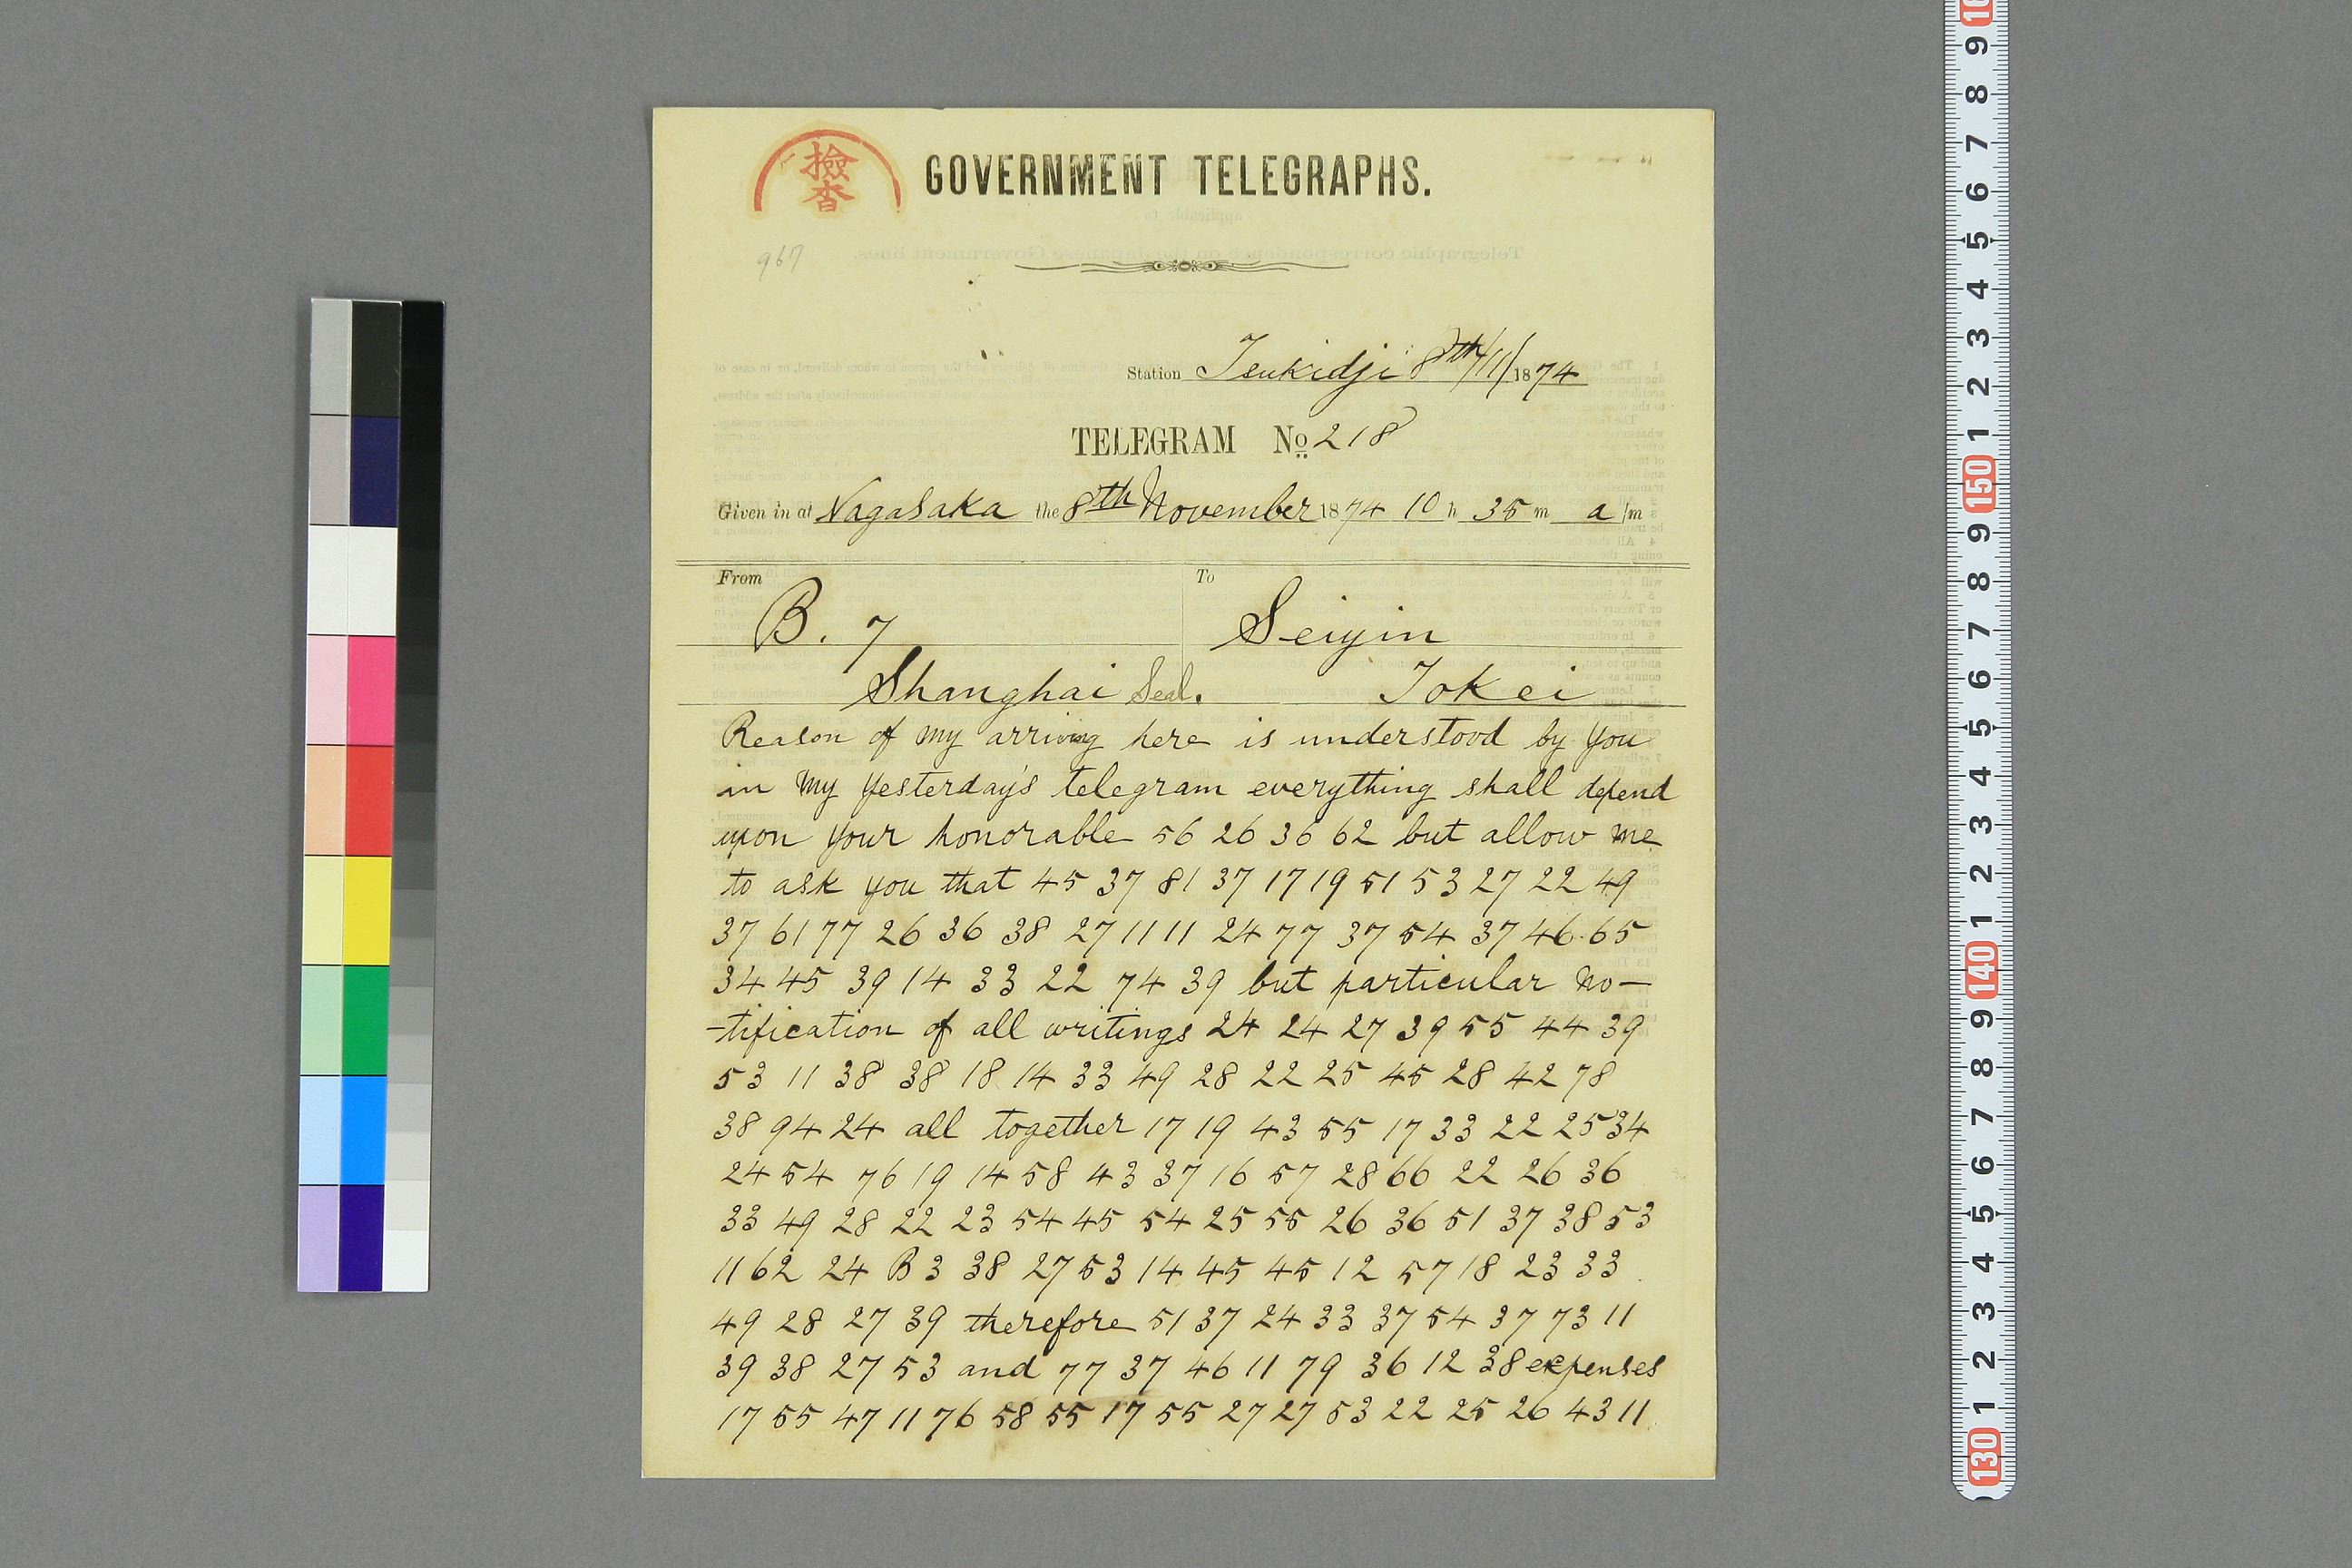 撿査
GOVERNMENT TELEGRAPHS.
967
Station Tsukidji 8th/11/1874
TELEGRAM No 218
Given in at Nagasaka the 8th November 1874 10 h 35 m a/m
From
To
B. 7
Seiyin
Shanghai Seal.
Tokei
Reason of my arriving here is understood by you
in my yesterday's telegram everything shall depend
upon your honorable 56 26 36 62 but allow me
to ask you that 45 37 81 37 17 19 51 53 27 22 49
37 61 77 26 36 38 27 11 11 24 77 37 54 37 46 65
34 45 39 14 33 22 74 39 but particular no—
—tification of all writings 24 24 27 39 55 44 39
53 11 38 38 18 14 33 49 28 22 25 45 28 42 78
38 94 24 all together 17 19 43 55 17 33 22 25 34
24 54 76 19 14 58 43 37 16 57 28 66 22 26 36
33 49 28 22 23 54 45 54 25 55 26 36 51 37 38 53
11 62 24 B 3 38 27 53 14 45 45 12 57 18 23 33
49 28 27 39 therefore 51 37 24 33 37 54 37 73 11
39 38 27 53 and 77 37 46 11 79 36 12 38 expenses
17 55 47 11 76 58 55 17 55 27 27 53 22 25 26 43 11
10
9
8
7
6
5
4
3
2
1
150
9
8
7
6
5
4
3
2
1
140
9
8
7
6
5
4
3
2
1
130